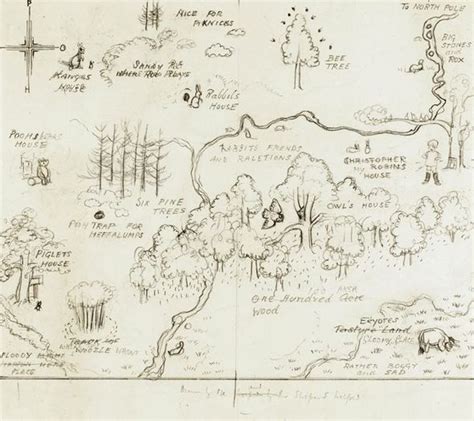 NICE FOR
PIKNICKS
TO NORTH POLE
BIG
STONES
AND
ROX
BEE
TREE
SANDY PIT
WHERE ROO PLAYS
KANGAS
HOUSE
RABBITS
HOUSE
POOH BEARS
HOUSE
RABBITS FRENDS
AND RALETIONS
CHRISTOPHER
ROBINS
HOUSE
SIX PINE
TREES
OWLS HOUSE
POOH TRAP FOR
HEFFALUMPS
PIGLETS
HOUSE
One Hundred Acre
Wood
EEYORES
GLOOMY PLACE
RATHER BOGGY
AND SAD
WOOZLE
PLACE
Drawn by Me and
Shepard helped